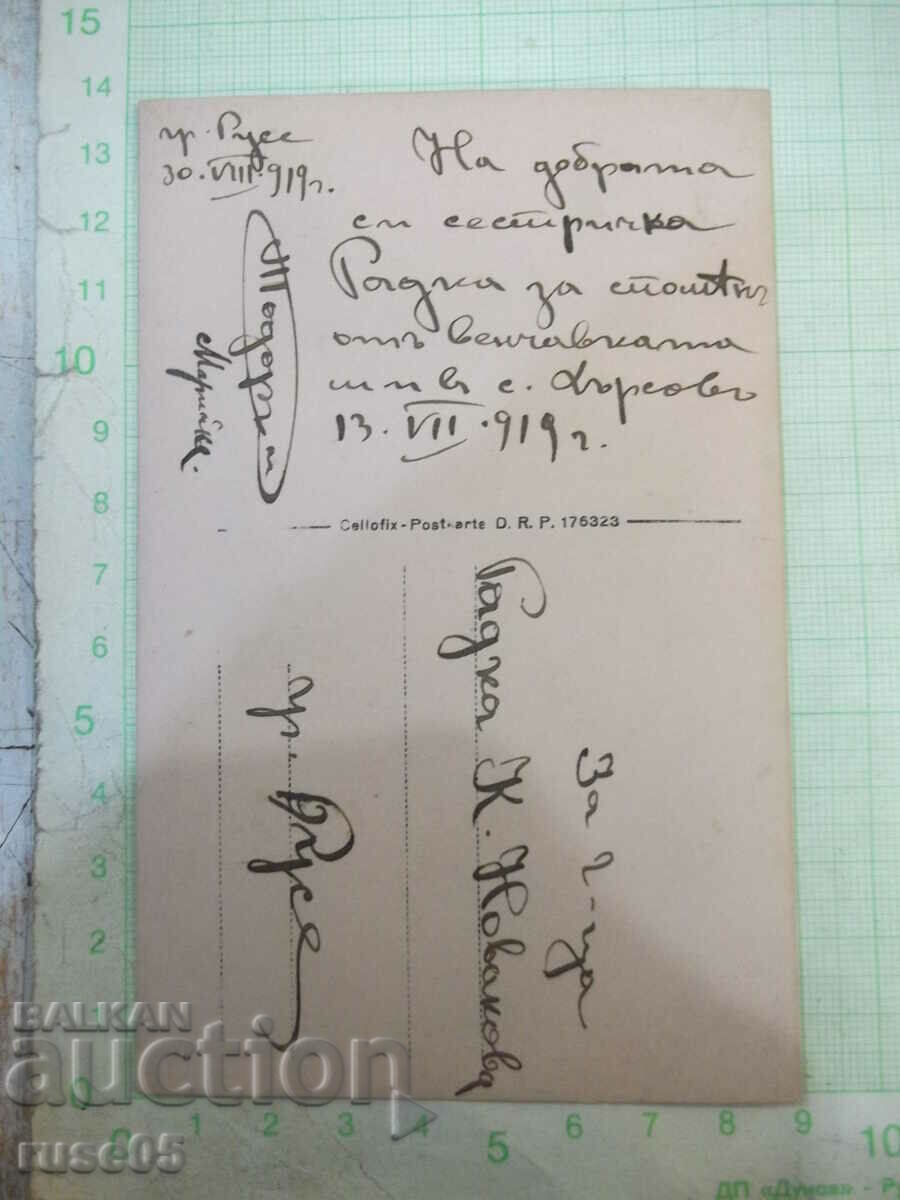 гр. Русе
30. VIII. 919 г.
На добрата
си сестричка
Радка за спомен
отъ венчавката
ни въ с. Хърсово
13. VII. 919 г.
Тодорки
Марийка.
Cellofix-Postkarte D. R. P. 176323
За г-ца
Радка К. Новакова
гр. Русе
BALKAN
auction
ruse05
15
14
13
12
11
10
9
8
7
6
5
4
3
2
1
0
0 1 2 3 4 5 6 7 8 9 10